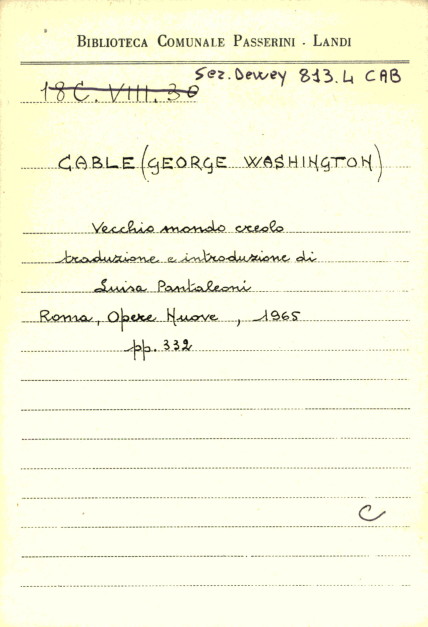 BIBLIOTECA COMUNALE PASSERINI - LANDI
Sez. Dewey 813.4 CAB
18 C. VIII. 30
CABLE (GEORGE WASHINGTON)
Vecchio mondo creolo
traduzione e introduzione di
Luisa Pantaleoni
Roma, Opere Nuove, 1965
pp. 332
C